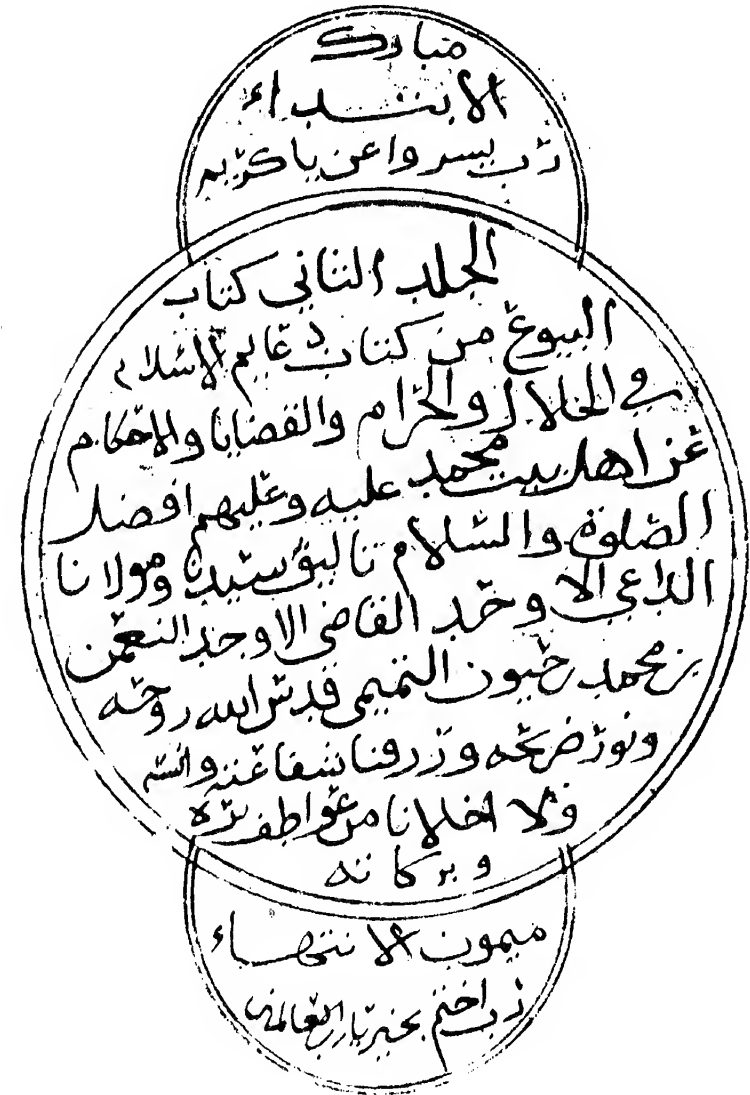 مبارك
الابتداء
رب يسر واعن ياكريم
المجلد الثاني كتاب
البيوع من كتاب دعايم الاسلام
في الحلال والحرام والقضايا والاحكام
عن اهل بيت محمد عليه وعليهم افضل
الصلوة والسلام تاليف سيدنا ومولانا
الداعي الاوحد القاضي الاوحد النعمن
بن محمد بن حيون التميمي قدس الله روحه
ونور ضريحه ورزقنا شفاعته وانسه
ولا اخلانا من عواطف بره
وبركاته
ميمون الانتهاء
رب اختم بخير يا رب العالمين